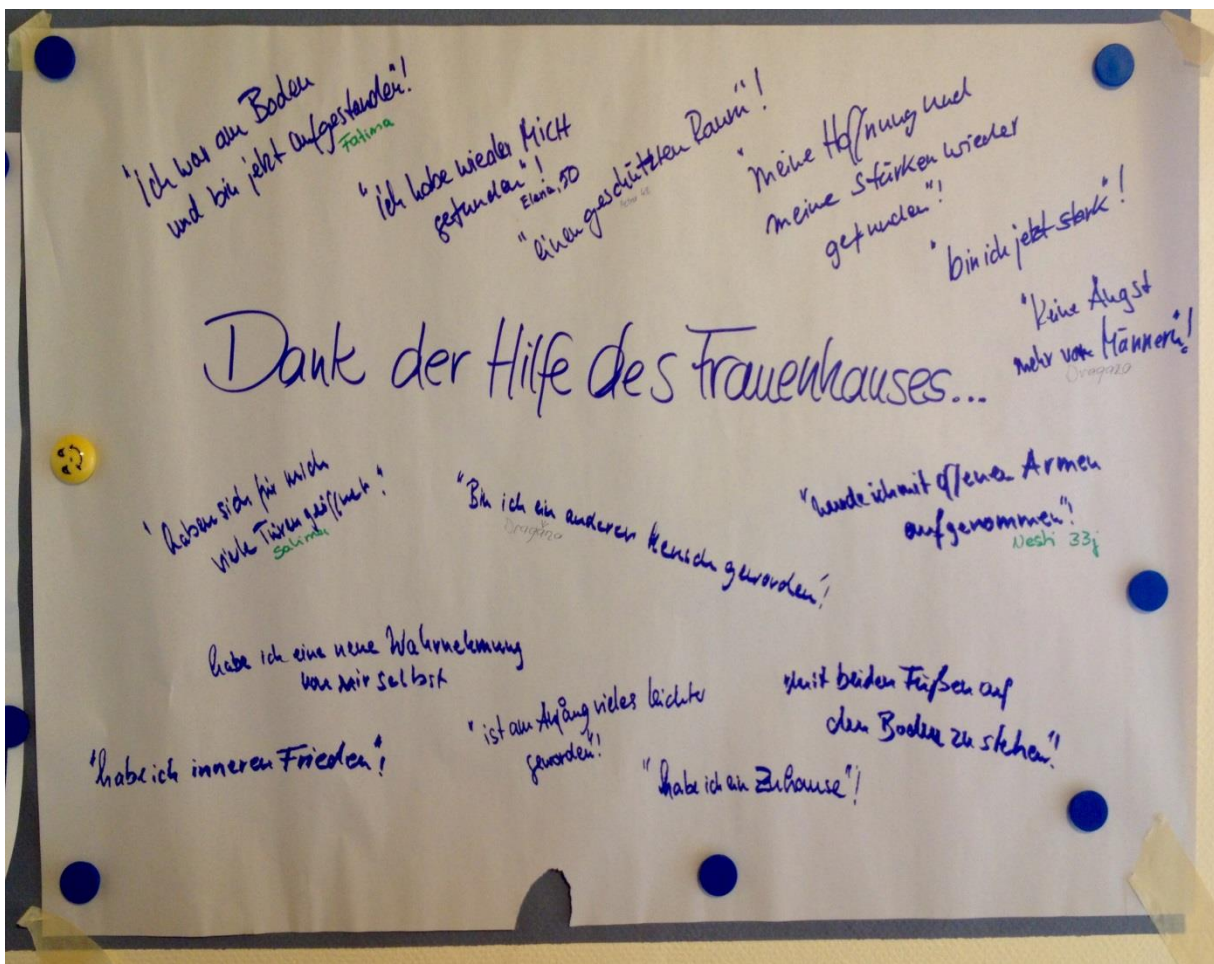 "Ich war am Boden
und bin jetzt aufgestanden"!
Fatima
"Ich habe wieder MICH
gefunden"!
Elena, 50
"einen geschützten Raum"!
"meine Hoffnung und
meine Stärken wieder
gefunden"!
"bin ich jetzt stark"!
"Keine Angst
mehr vor Männern"!
Dragana
Dank der Hilfe des Frauenhauses...
"haben sich für mich
viele Türen geöffnet"!
Salima
"Bin ich ein anderer Mensch geworden"!
Dragana
"wurde ich mit offenen Armen
aufgenommen"!
Neshi 33j
habe ich eine neue Wahrnehmung
von mir selbst
"ist am Anfang vieles leichter
geworden"!
"mit beiden Füßen auf
dem Boden zu stehen"!
"habe ich inneren Frieden"!
"habe ich ein Zuhause"!